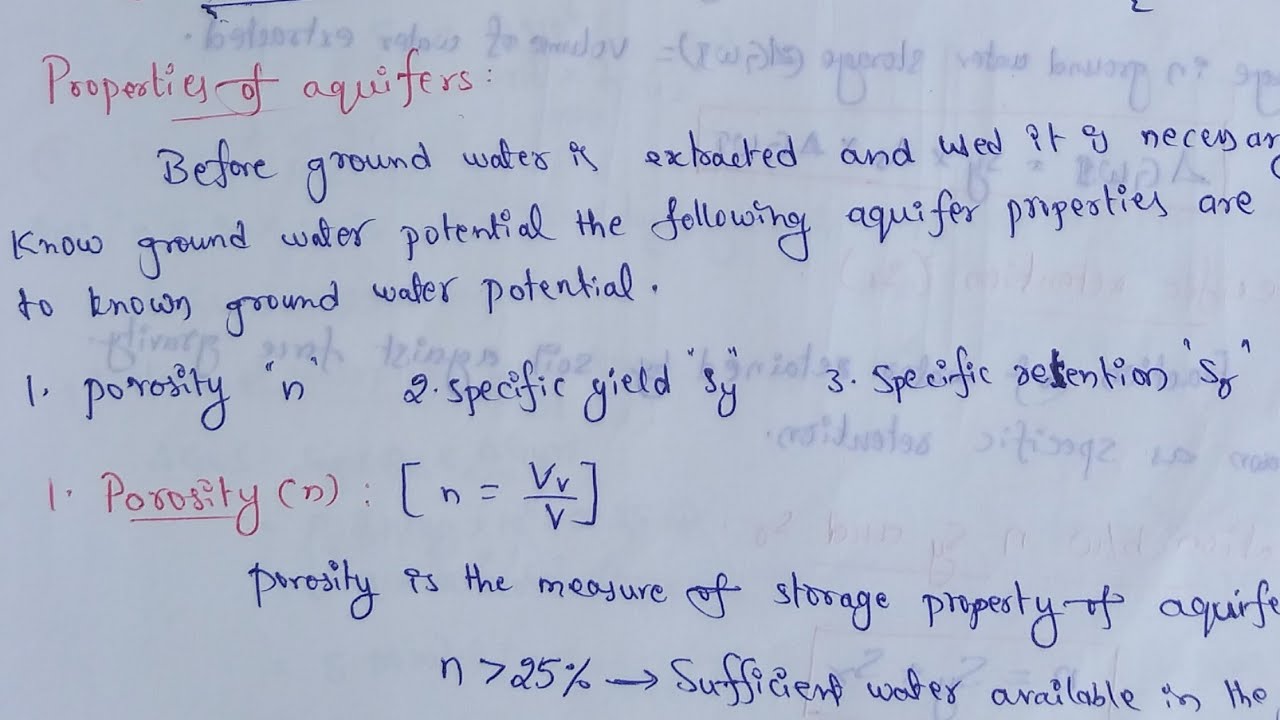 Properties of aquifers:
Before ground water is extracted and used it is necessar
know ground water potential the following aquifer properties are
to known ground water potential.
1. porosity "n" 2. specific yield "Sy" 3. specific retention "Sr"
1. Porosity (n): [n = Vv/V]
porosity is the measure of storage property of aquirfe
n > 25% → Sufficient water available in the